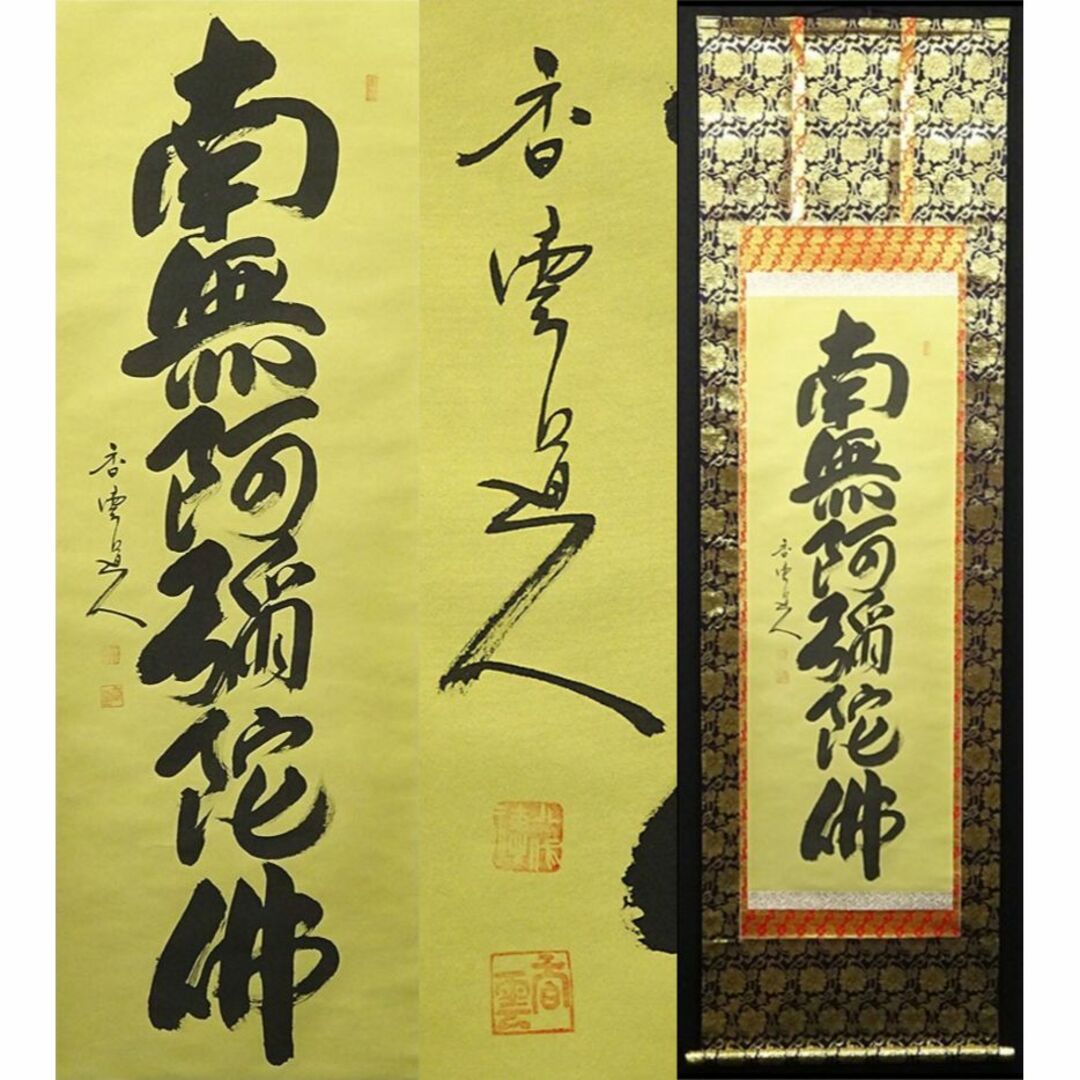 南無阿彌陀佛
香雲道人
香雲道人
香雲
南無阿彌陀佛
香雲道人